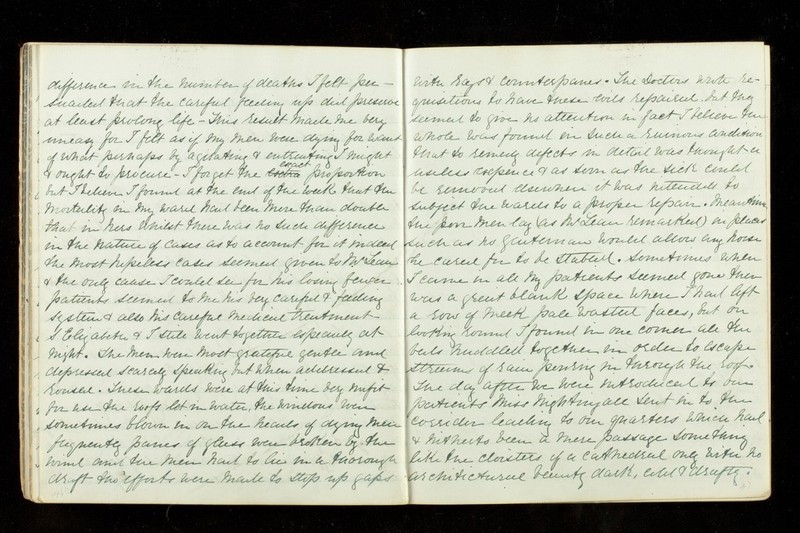 difference in the number of deaths I felt per-
suaded that the careful feeding up did preserve
at least prolong life - This result made me very
uneasy for I felt as if my men were dying for want
of what perhaps by agitating & entreating I might
& ought to procure - I forget the exact proportion
but I believe I found at the end of the week that the
mortality in my ward had been more than double
that in hers whilst there was no such difference
in the nature of cases as to account for it indeed
the most hopeless cases seemed given to Mr Lean
& the only cause I could see for his losing fewer
patients seemed to me his very careful & feeding
system & also his careful medical treatment
S Elizabeth & I still went together especially at
night. The men were most grateful gentle and
depressed scarcely speaking but when addressed &
roused. These wards were at this time very unfit
for use the roofs let in water, the windows were
sometimes blown in on the heads of dying men
frequently panes of glass were broken by the
wind and the men had to lie in a thorough
draft tho' efforts were made to stop up gaps
with rags & counterpanes. The Doctors wrote re-
quisitions to have these evils repaired but they
seemed to give no attention in fact I believe the
whole was found in such a ruinous condition
that to remedy defects in detail was thought a
useless expence & as soon as the sick could
be removed elsewhere it was intended to
subject the wards to a proper repair. Meantime
the poor men lay (as Mr Lean remarked) in places
such as no gentleman would allow any horse
he cared for to be stabled. Sometimes when
I came in all my patients seemed gone there
was a great blank space where I had left
a row of meek pale wasted faces, but on
looking round I found in one corner all the
beds huddled together in order to escape
streams of rain pouring in through the roof
The day after we were introduced to our
patients Miss Nightingale sent in to the
corridor leading to our quarters which had
& hitherto been a mere passage something
like the cloisters of a cathedral only with no
architectural beauty dark, cold & drafty.